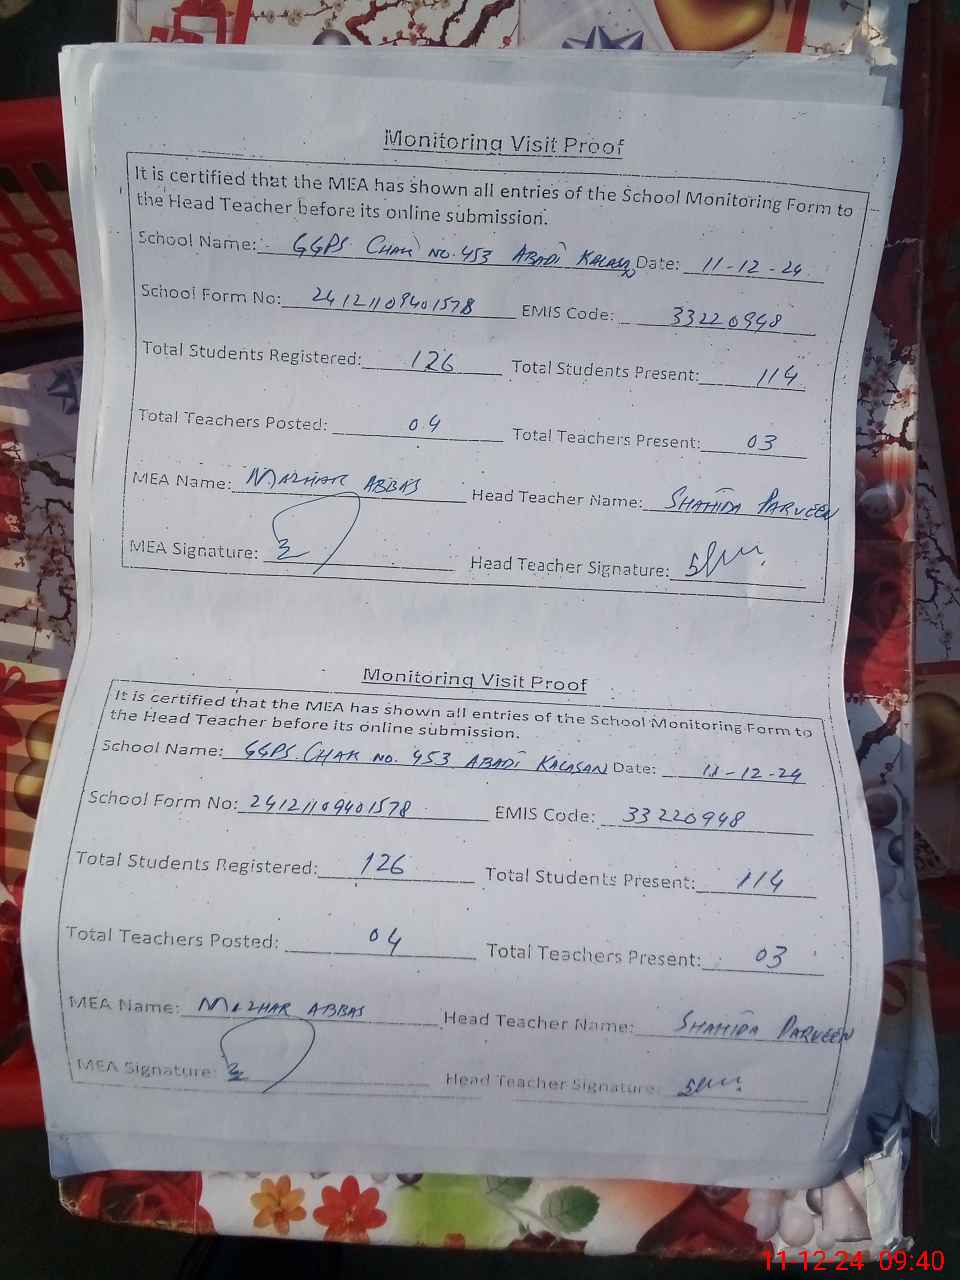 Monitoring Visit Proof
It is certified that the MEA has shown all entries of the School Monitoring Form to
the Head Teacher before its online submission.
School Name: GGPS CHAK NO. 453 ABADI KALASAN Date: 11-12-24
School Form No: 24121109401578 EMIS Code: 33220948
Total Students Registered: 126 Total Students Present: 114
Total Teachers Posted: 04 Total Teachers Present: 03
MEA Name: MAZHAR ABBAS Head Teacher Name: SHAHIDA PARVEEN
MEA Signature: Head Teacher Signature:
Monitoring Visit Proof
It is certified that the MEA has shown all entries of the School Monitoring Form to
the Head Teacher before its online submission.
School Name: GGPS. CHAK NO. 453 ABADI KALASAN Date: 11-12-24
School Form No: 24121109401578 EMIS Code: 33220948
Total Students Registered: 126 Total Students Present: 114
Total Teachers Posted: 04 Total Teachers Present: 03
MEA Name: MAZHAR ABBAS Head Teacher Name: SHAHIDA PARVEEN
MEA Signature: Head Teacher Signature:
11 12 24 09:40